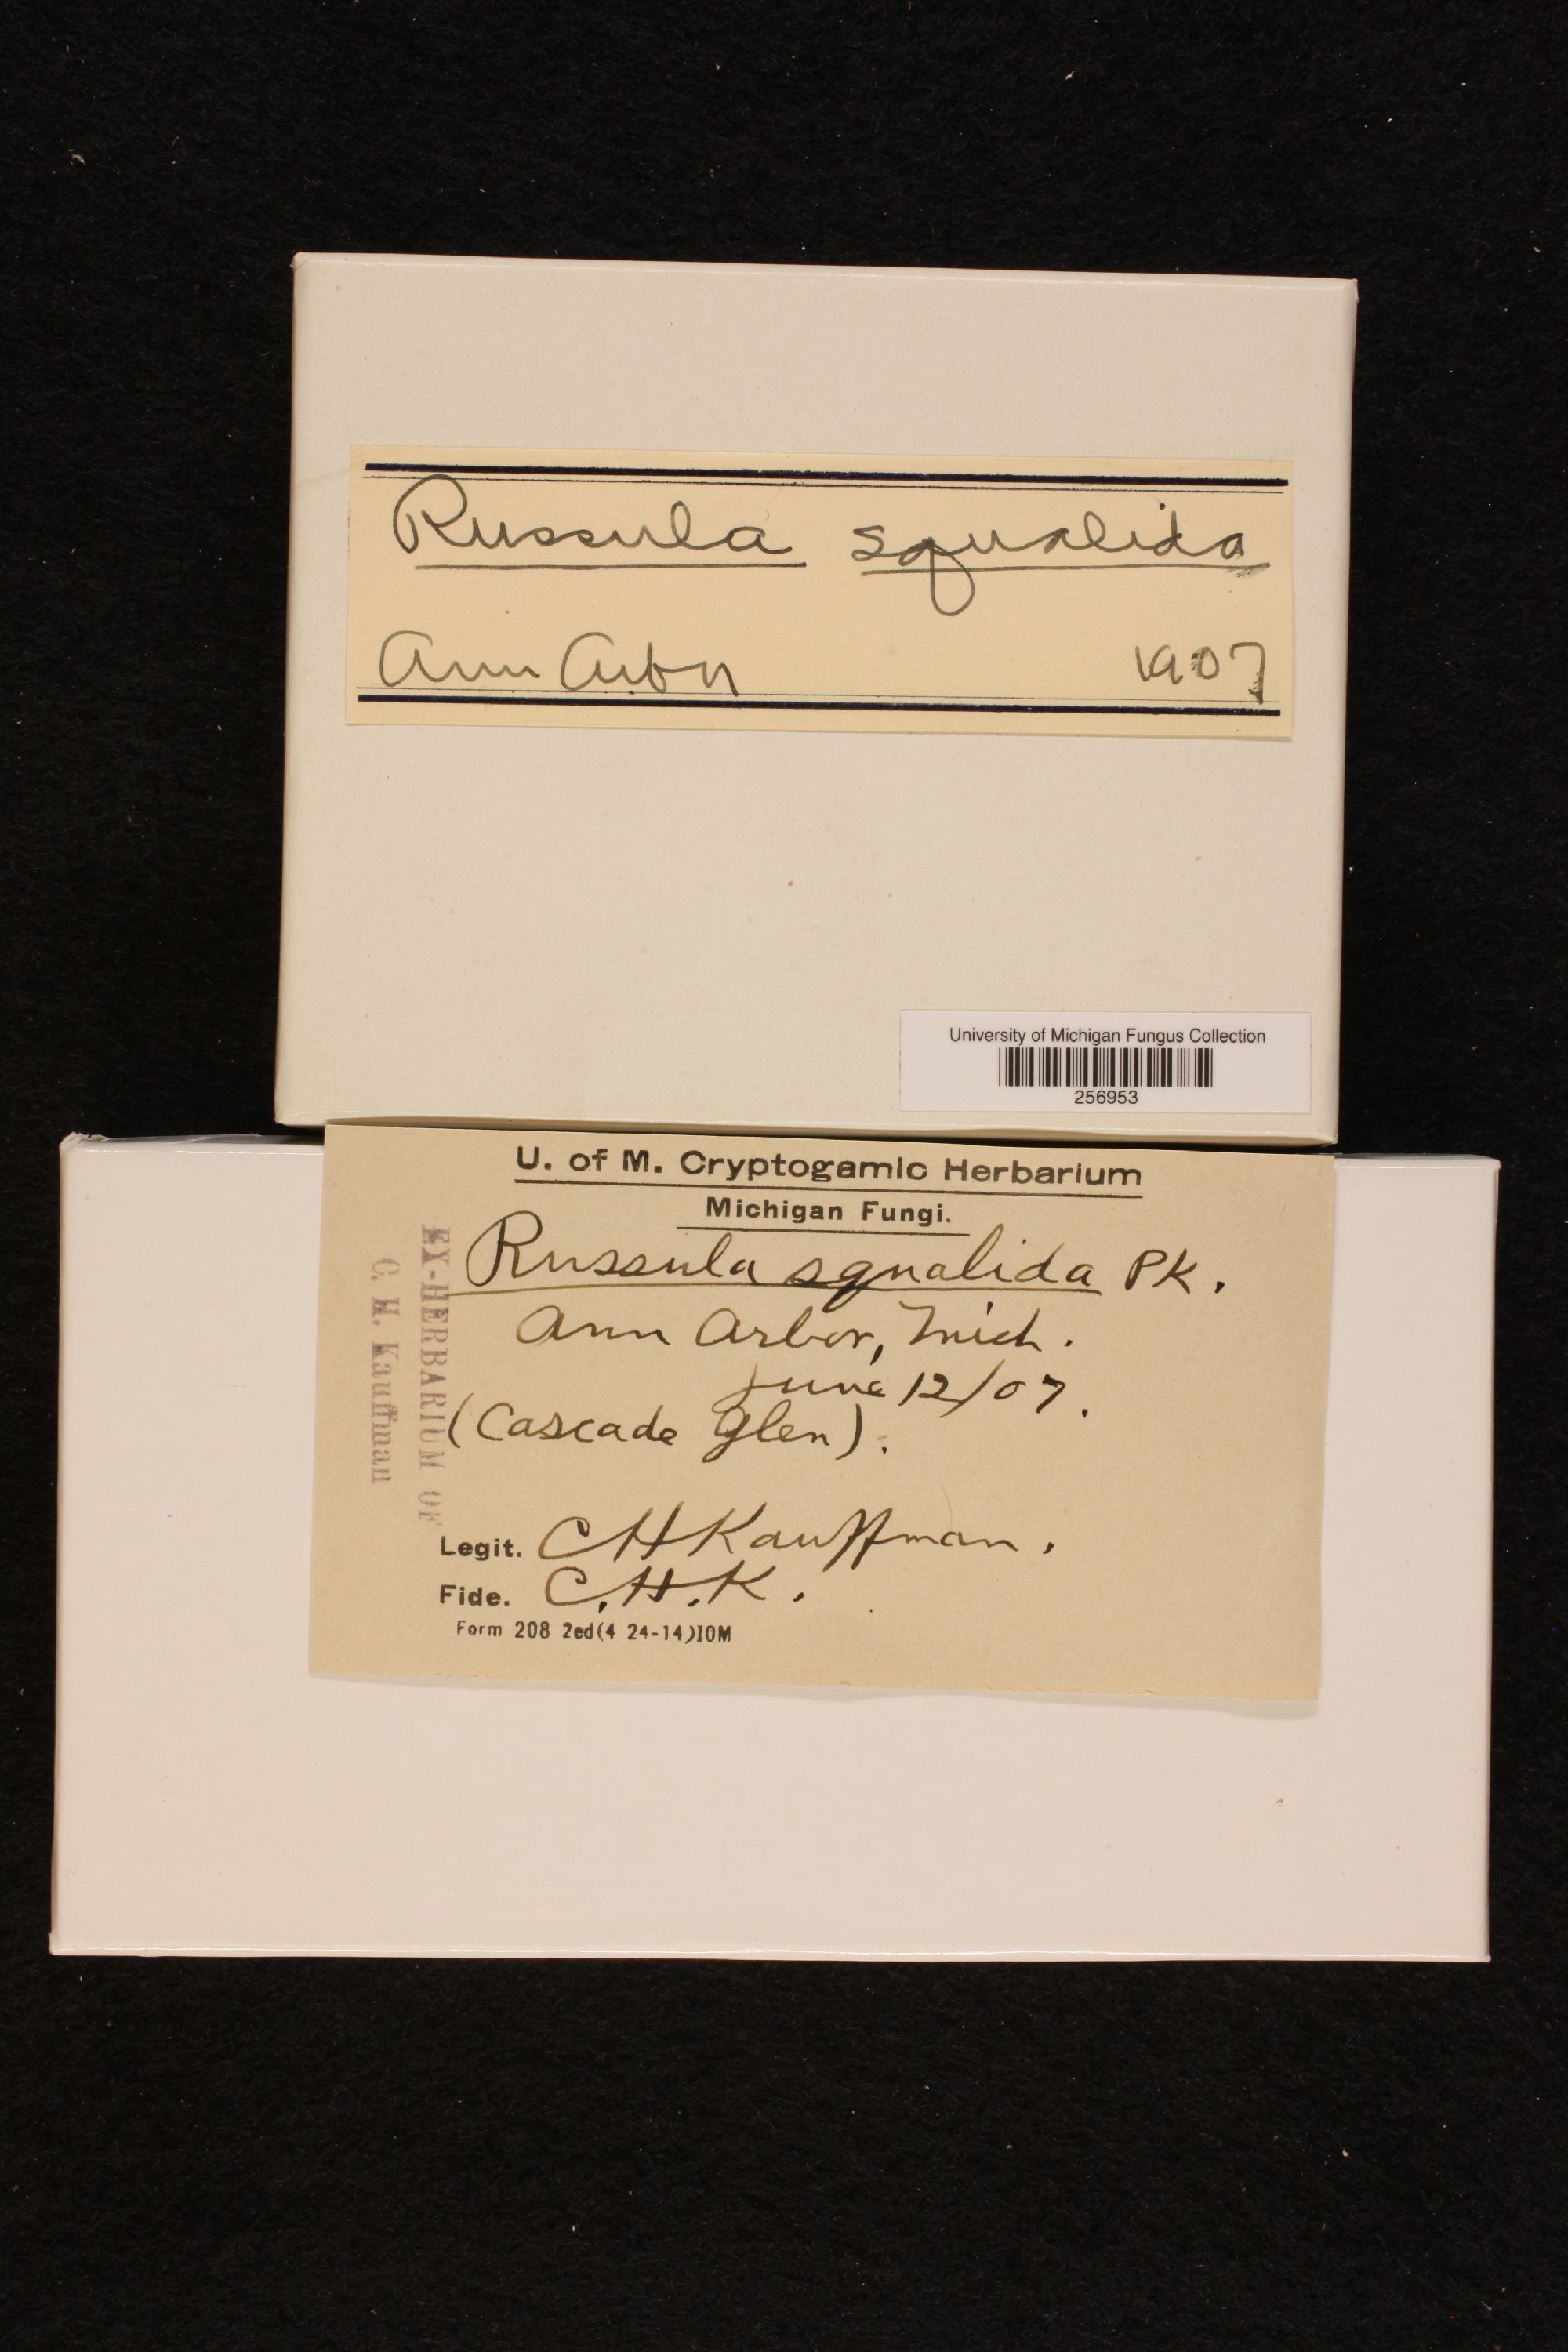 Russula squalida
Ann Arbor 1907
University of Michigan Fungus Collection
256953
U. of M. Cryptogamic Herbarium
Michigan Fungi.
Russula squalida PK.
Ann Arbor, Mich.
June 12/07.
(Cascade Glen).
Legit. CHKauffman.
Fide. C.H.K.
Form 208 2ed(4 24-14)10M
EX-HERBARIUM OF
C. H. Kauffman